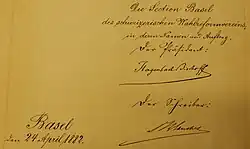 Die Section Basel
des schweizerischen Wahlreformvereins,
in deren Namen und Auftrag.
Der Präsident:
Hagenbach-Bischoff
Der Schreiber:
Basel
den 24 April 1882.